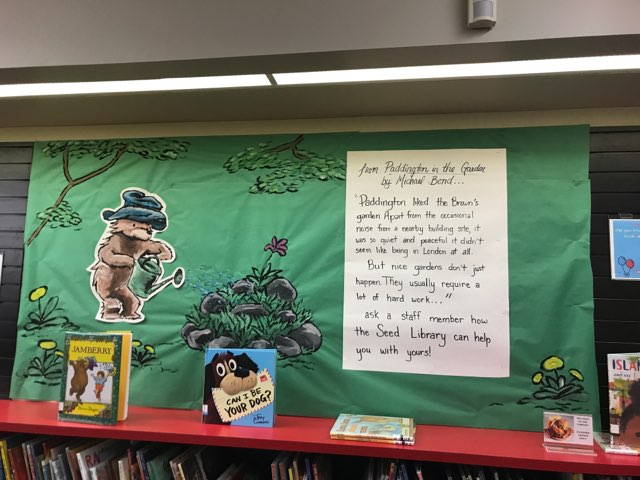 from Paddington in the Garden
by Michael Bond...
"Paddington liked the Brown's
garden Apart from the occasional
noise from a nearby building site, it
was so quiet and peaceful it didn't
seem like being in London at all.
But nice gardens don't just
happen. They usually require a
lot of hard work..."
ask a staff member how
the Seed Library can help
you with yours!
JAMBERRY
CAN I BE
YOUR DOG?
ISLAN